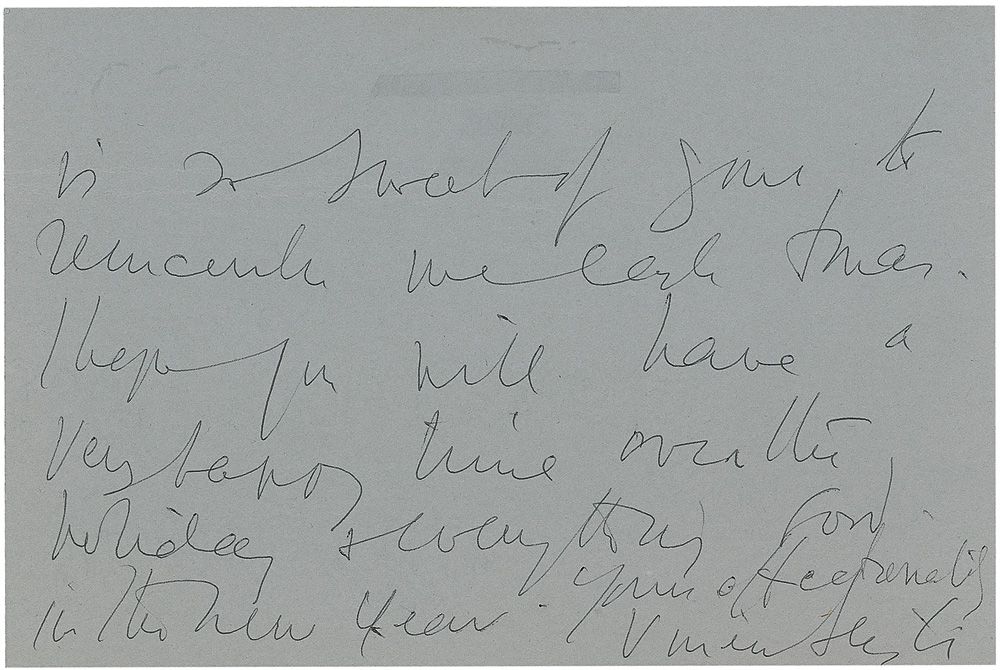 is so sweet of you to
remember me each Xmas.
I hope you will have a
very happy time over the
holiday & everything good
in the New Year. Yours affectionately
Vivien Leigh